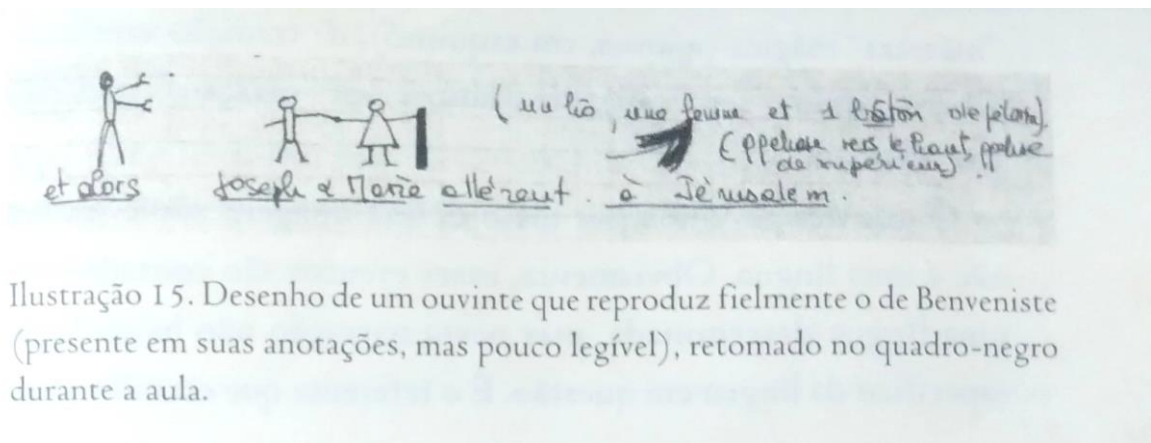 ( un lié, une femme et 1 bâton de pèlerin).
vers le haut,
de supérieur)
et alors Joseph & Marie allèrent à Jérusalem.
Ilustração 15. Desenho de um ouvinte que reproduz fielmente o de Benveniste
(presente em suas anotações, mas pouco legível), retomado no quadro-negro
durante a aula.